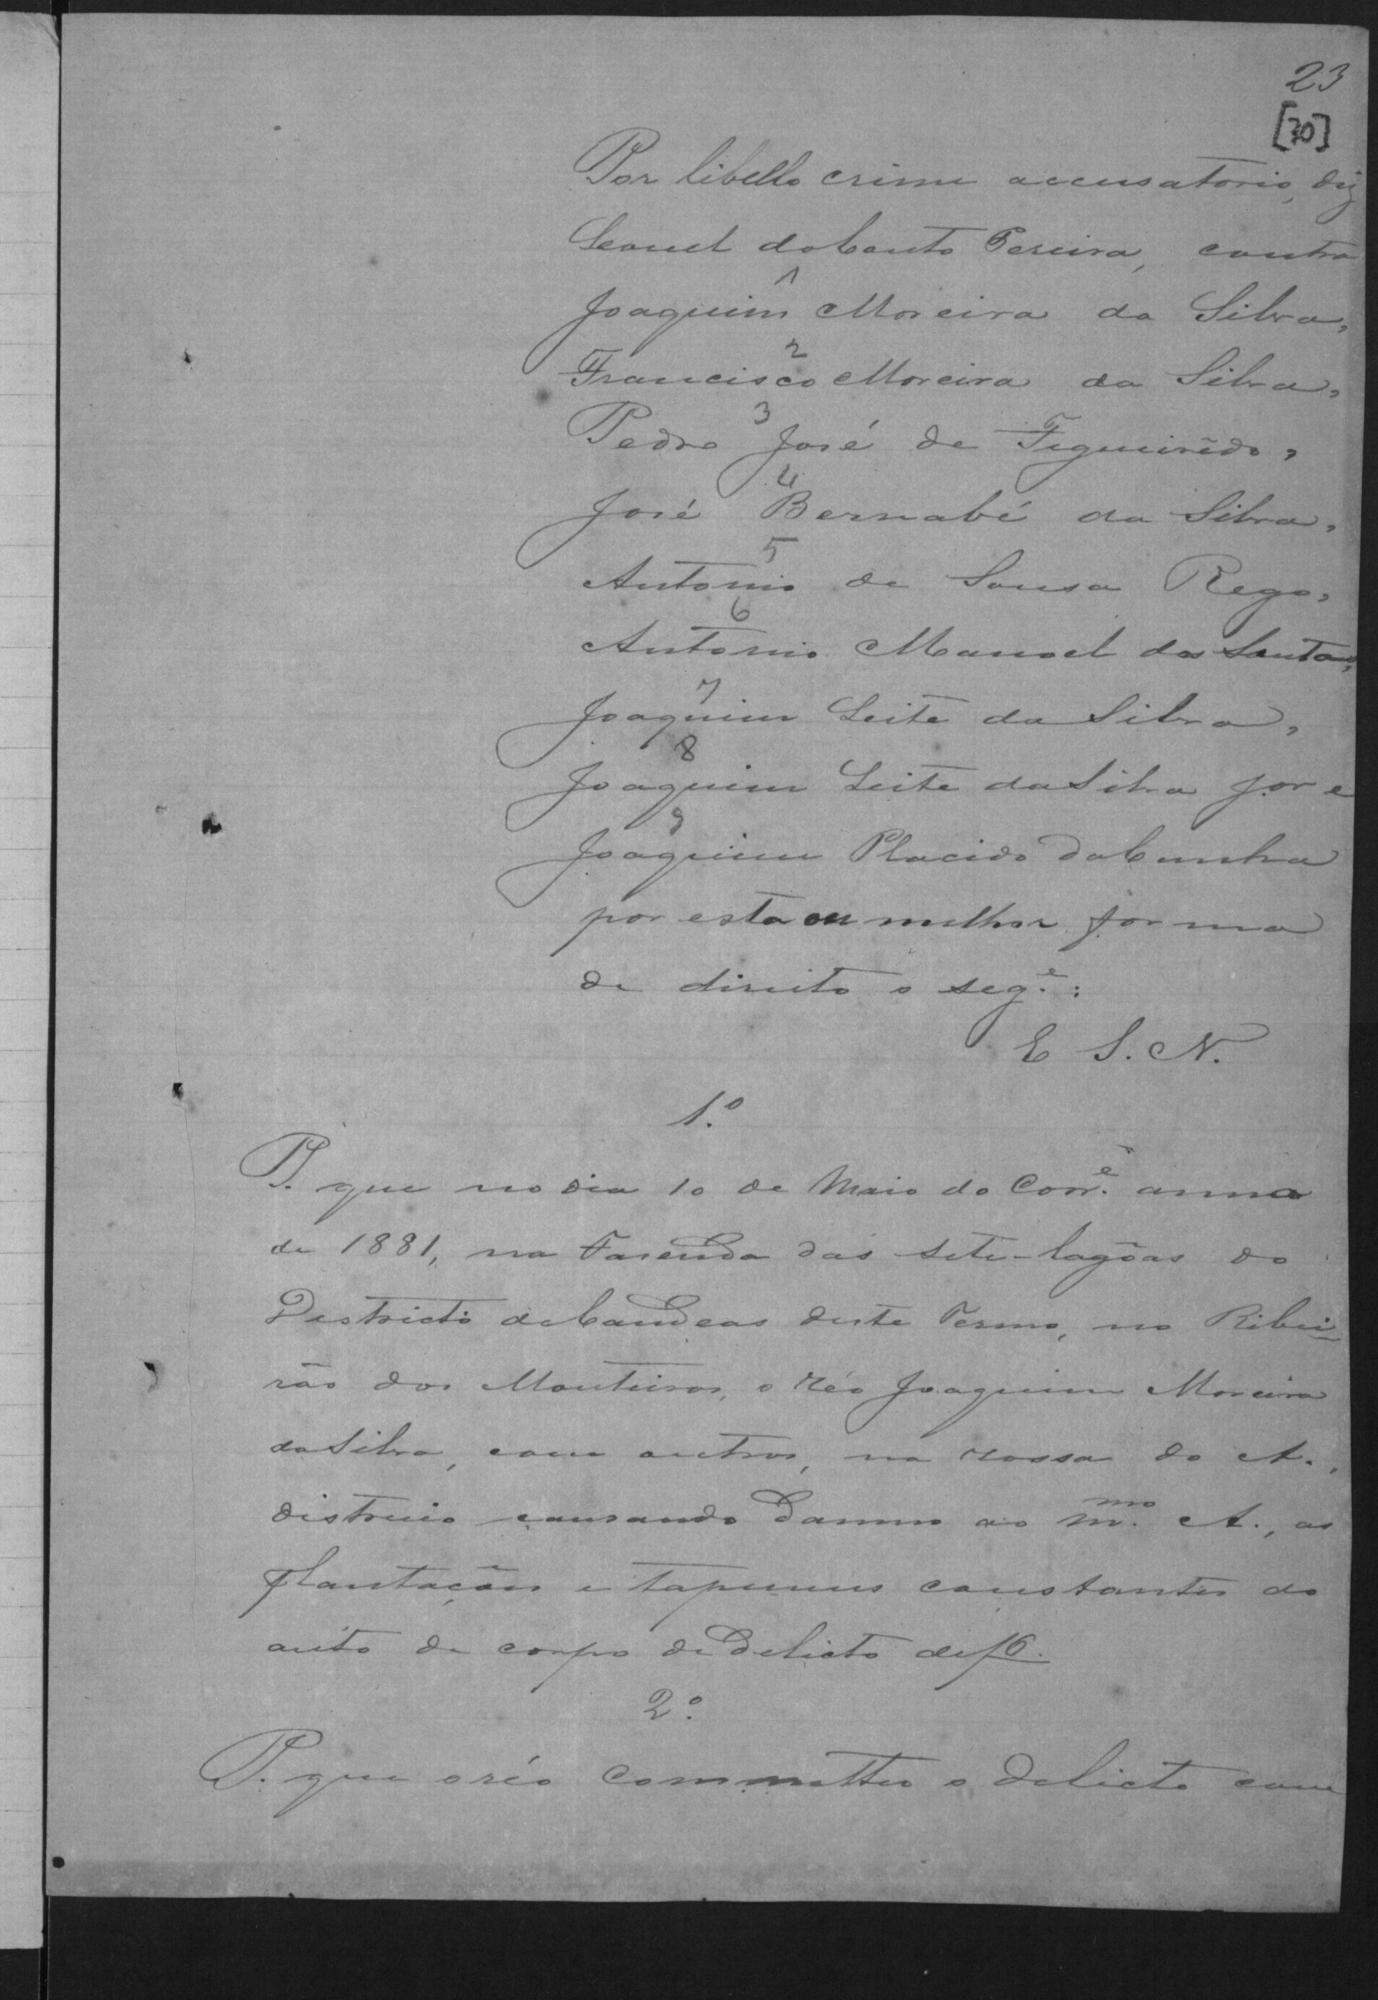 23
[30]
Por libello crime accusatorio, diz
Leonel do Couto Pereira, contra
1
Joaquim Moreira da Silva,
2
Francisco Moreira da Silva,
3
Pedro José de Figueirêdo,
4
José Bernabé da Silva,
5
Antonio de Sousa Rego,
6
Antonio Manoel dos Santos,
7
Joaquim Leite da Silva,
8
Joaquim Leite da Silva Jor e
9
Joaquim Placido da Cunha
por esta ou melhor forma
de direito o seg.e:
E S. N.
1.o
P. que no dia 10 de Maio do Corr.e anno
de 1881, na Fasenda das Sete-lagôas do
Districto de Candeas deste Termo, no Ribei
rão dos Monteiros, o réo Joaquim Moreira
da Silva, com outros, na rossa do A.,
distruio causando damno ao m.mo A., as
plantações e tapumes constantes do
auto de corpo de delicto de f 6.
2.o
P. que o réo commetteo o delicto com